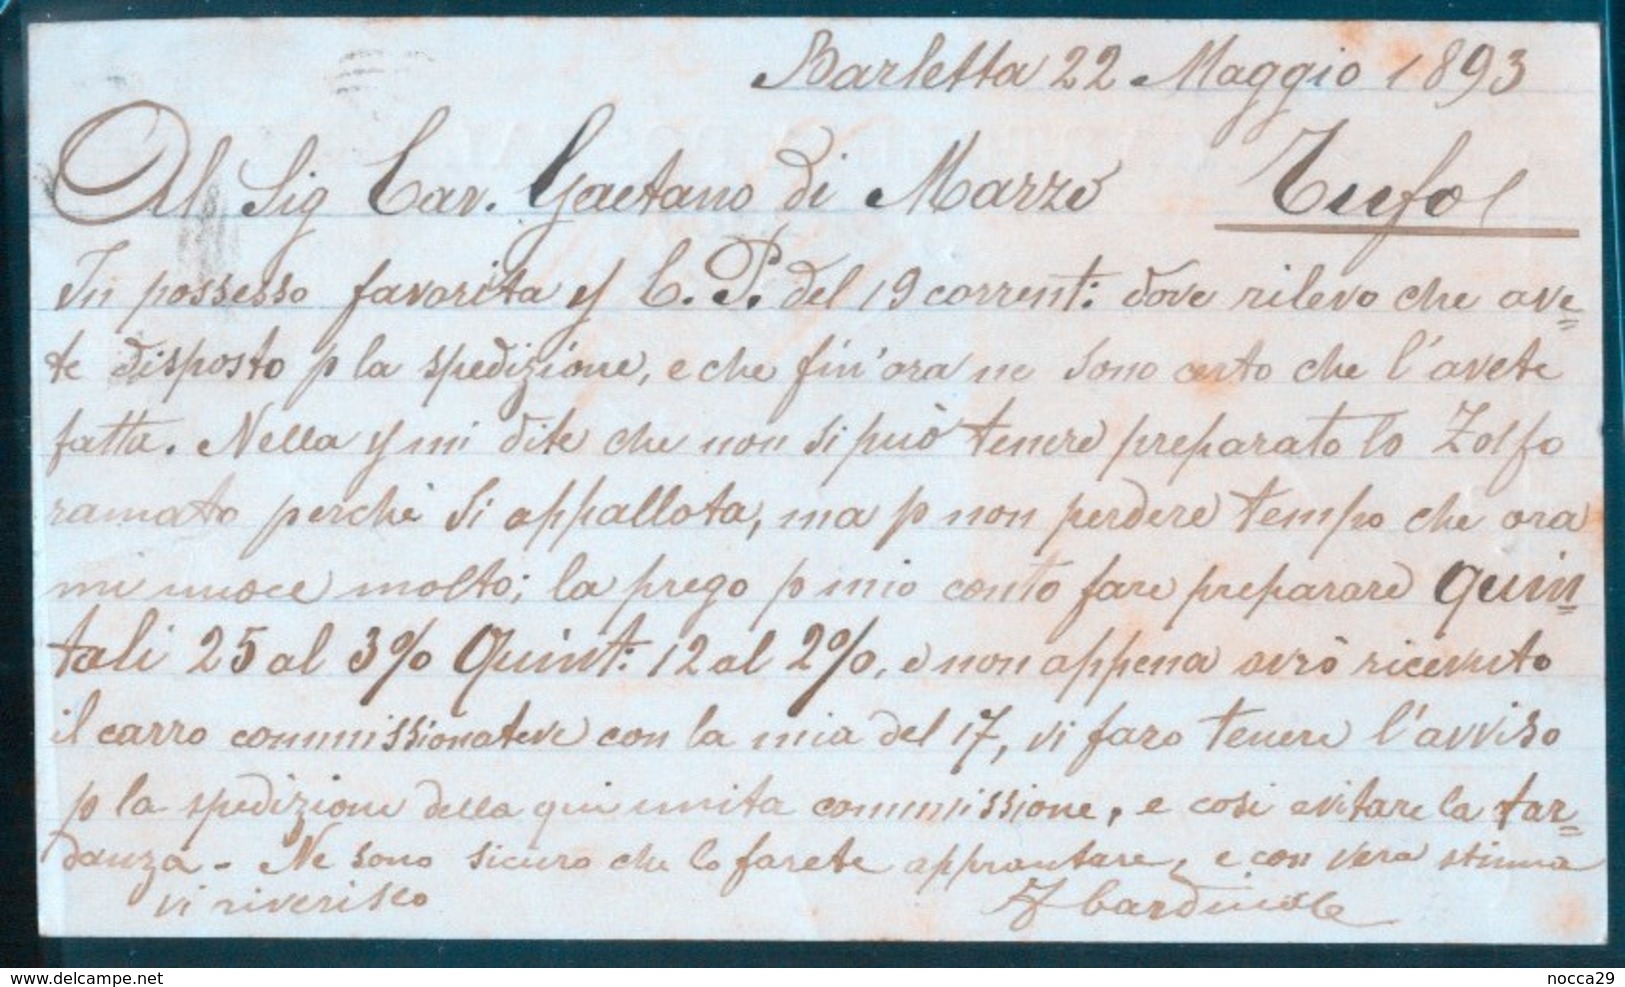 Barletta 22 Maggio 1893
Al Sig Cav. Gaetano di Marzo Tufo
In possesso favorita C. P. del 19 corrent: dove rilevo che ave=
te disposto p la spedizione, e che fin'ora ne sono certo che l'avete
fatta. Nella mi dite che non si può tenere preparato lo Zolfo
ramato perchè si appallota, ma p non perdere tempo che ora
mi nuoce molto; la prego p mio conto fare preparare Quin=
tali 25 al 3% Quint: 12 al 2%, e non appena avrò ricevuto
il carro commissionatove con la mia del 17, vi faro tenere l'avviso
p la spedizione della qui unita commissione, e cosi evitare la tar=
danza - Ne sono sicuro che lo farete approntare, e con vera stima
vi riverisco
www.delcampe.net
nocca29